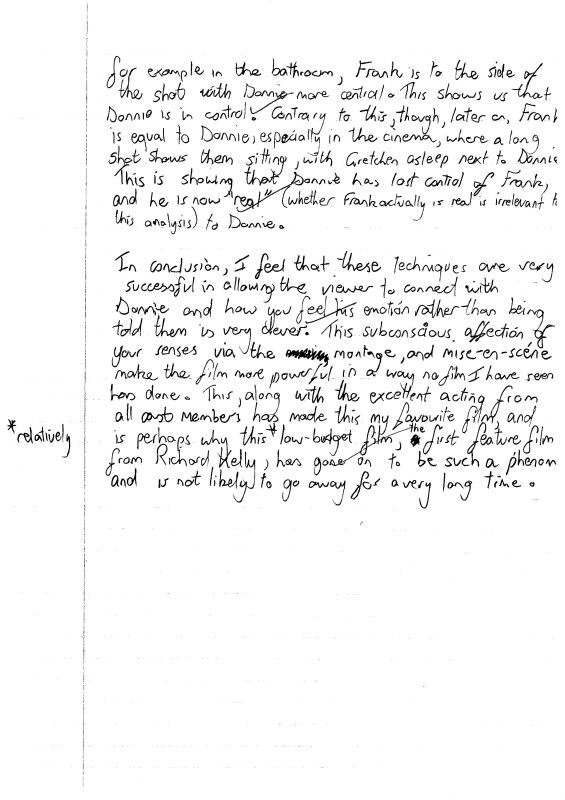 for example in the bathroom, Frank is to the side of
the shot with Donnie more central. This shows us that
Donnie is in control. Contrary to this, though, later on, Frank
is equal to Donnie, especially in the cinema, where a long
shot shows them sitting, with Gretchen asleep next to Donnie
This is showing that Donnie has lost control of Frank,
and he is now "real" (whether Frank actually is real is irrelevant t
this analysis) to Donnie.
In conclusion, I feel that these techniques are very
successful in allowing the viewer to connect with
Donnie and how you feel his emotion rather than being
told them is very clever. This subconscious affection of
your senses via the montage, and mise-en-scéne
make the film more powerful in a way no film I have seen
has done. This, along with the excellent acting from
all cast members has made this my favourite film, and
is perhaps why this * low-budget film, the first feature film
*relatively
from Richard Kelly, has gone on to be such a phenom
and is not likely to go away for a very long time.